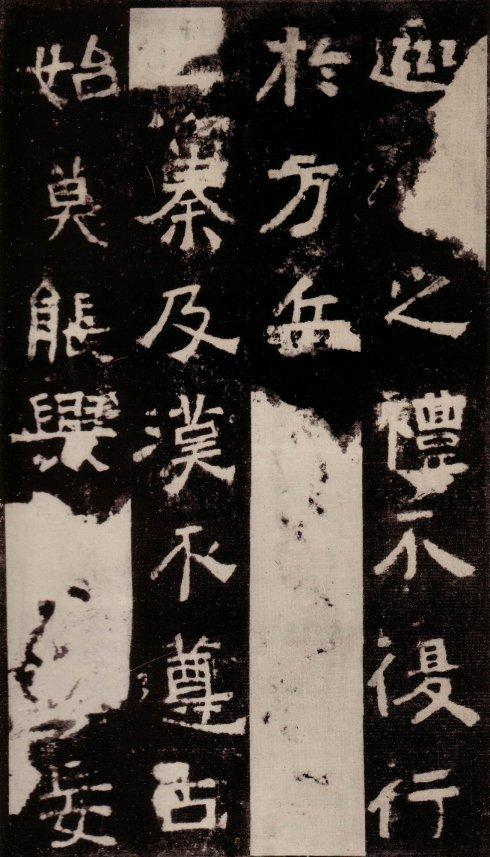 巡之禮不復行
於方岳
秦及漢不尊古
始莫能興妄